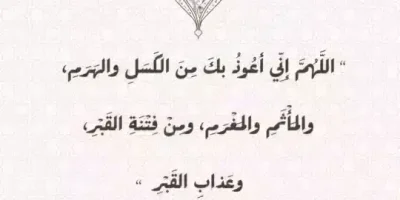 “ اللَّهُمَّ إِنِّي أعُوذُ بكَ مِنَ الكَسَلِ والهَرَمِ،
والمَأْثَمِ والمَغْرَمِ، ومِنْ فِتْنَةِ القَبْرِ،
وعَذابِ القَبْرِ “